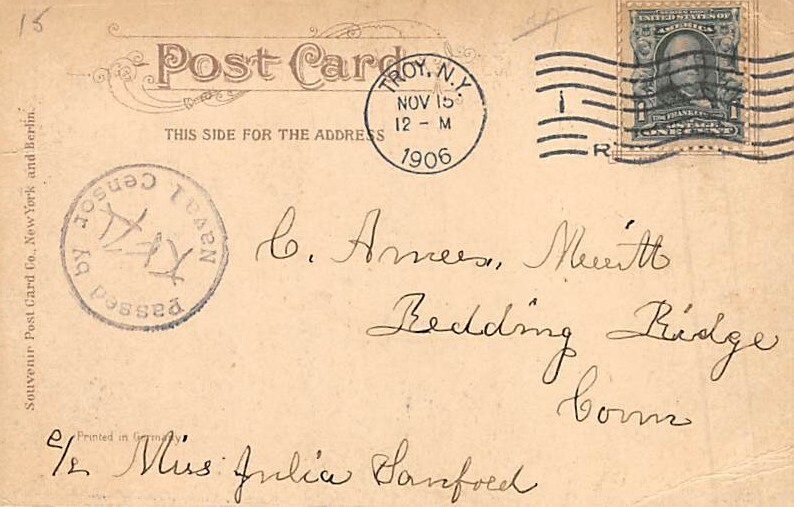 15
Post Card
THIS SIDE FOR THE ADDRESS
TROY, N.Y.
NOV 15
12 - M
1906
1
R
UNITED STATES OF
AMERICA
1 1
POSTAGE
ONE CENT
Passed by
Naval Censor
C. Amees, Merritt
Redding Ridge
Conn
Printed in Germany.
Miss Julia Sanford
Souvenir Post Card Co., New York and Berlin.